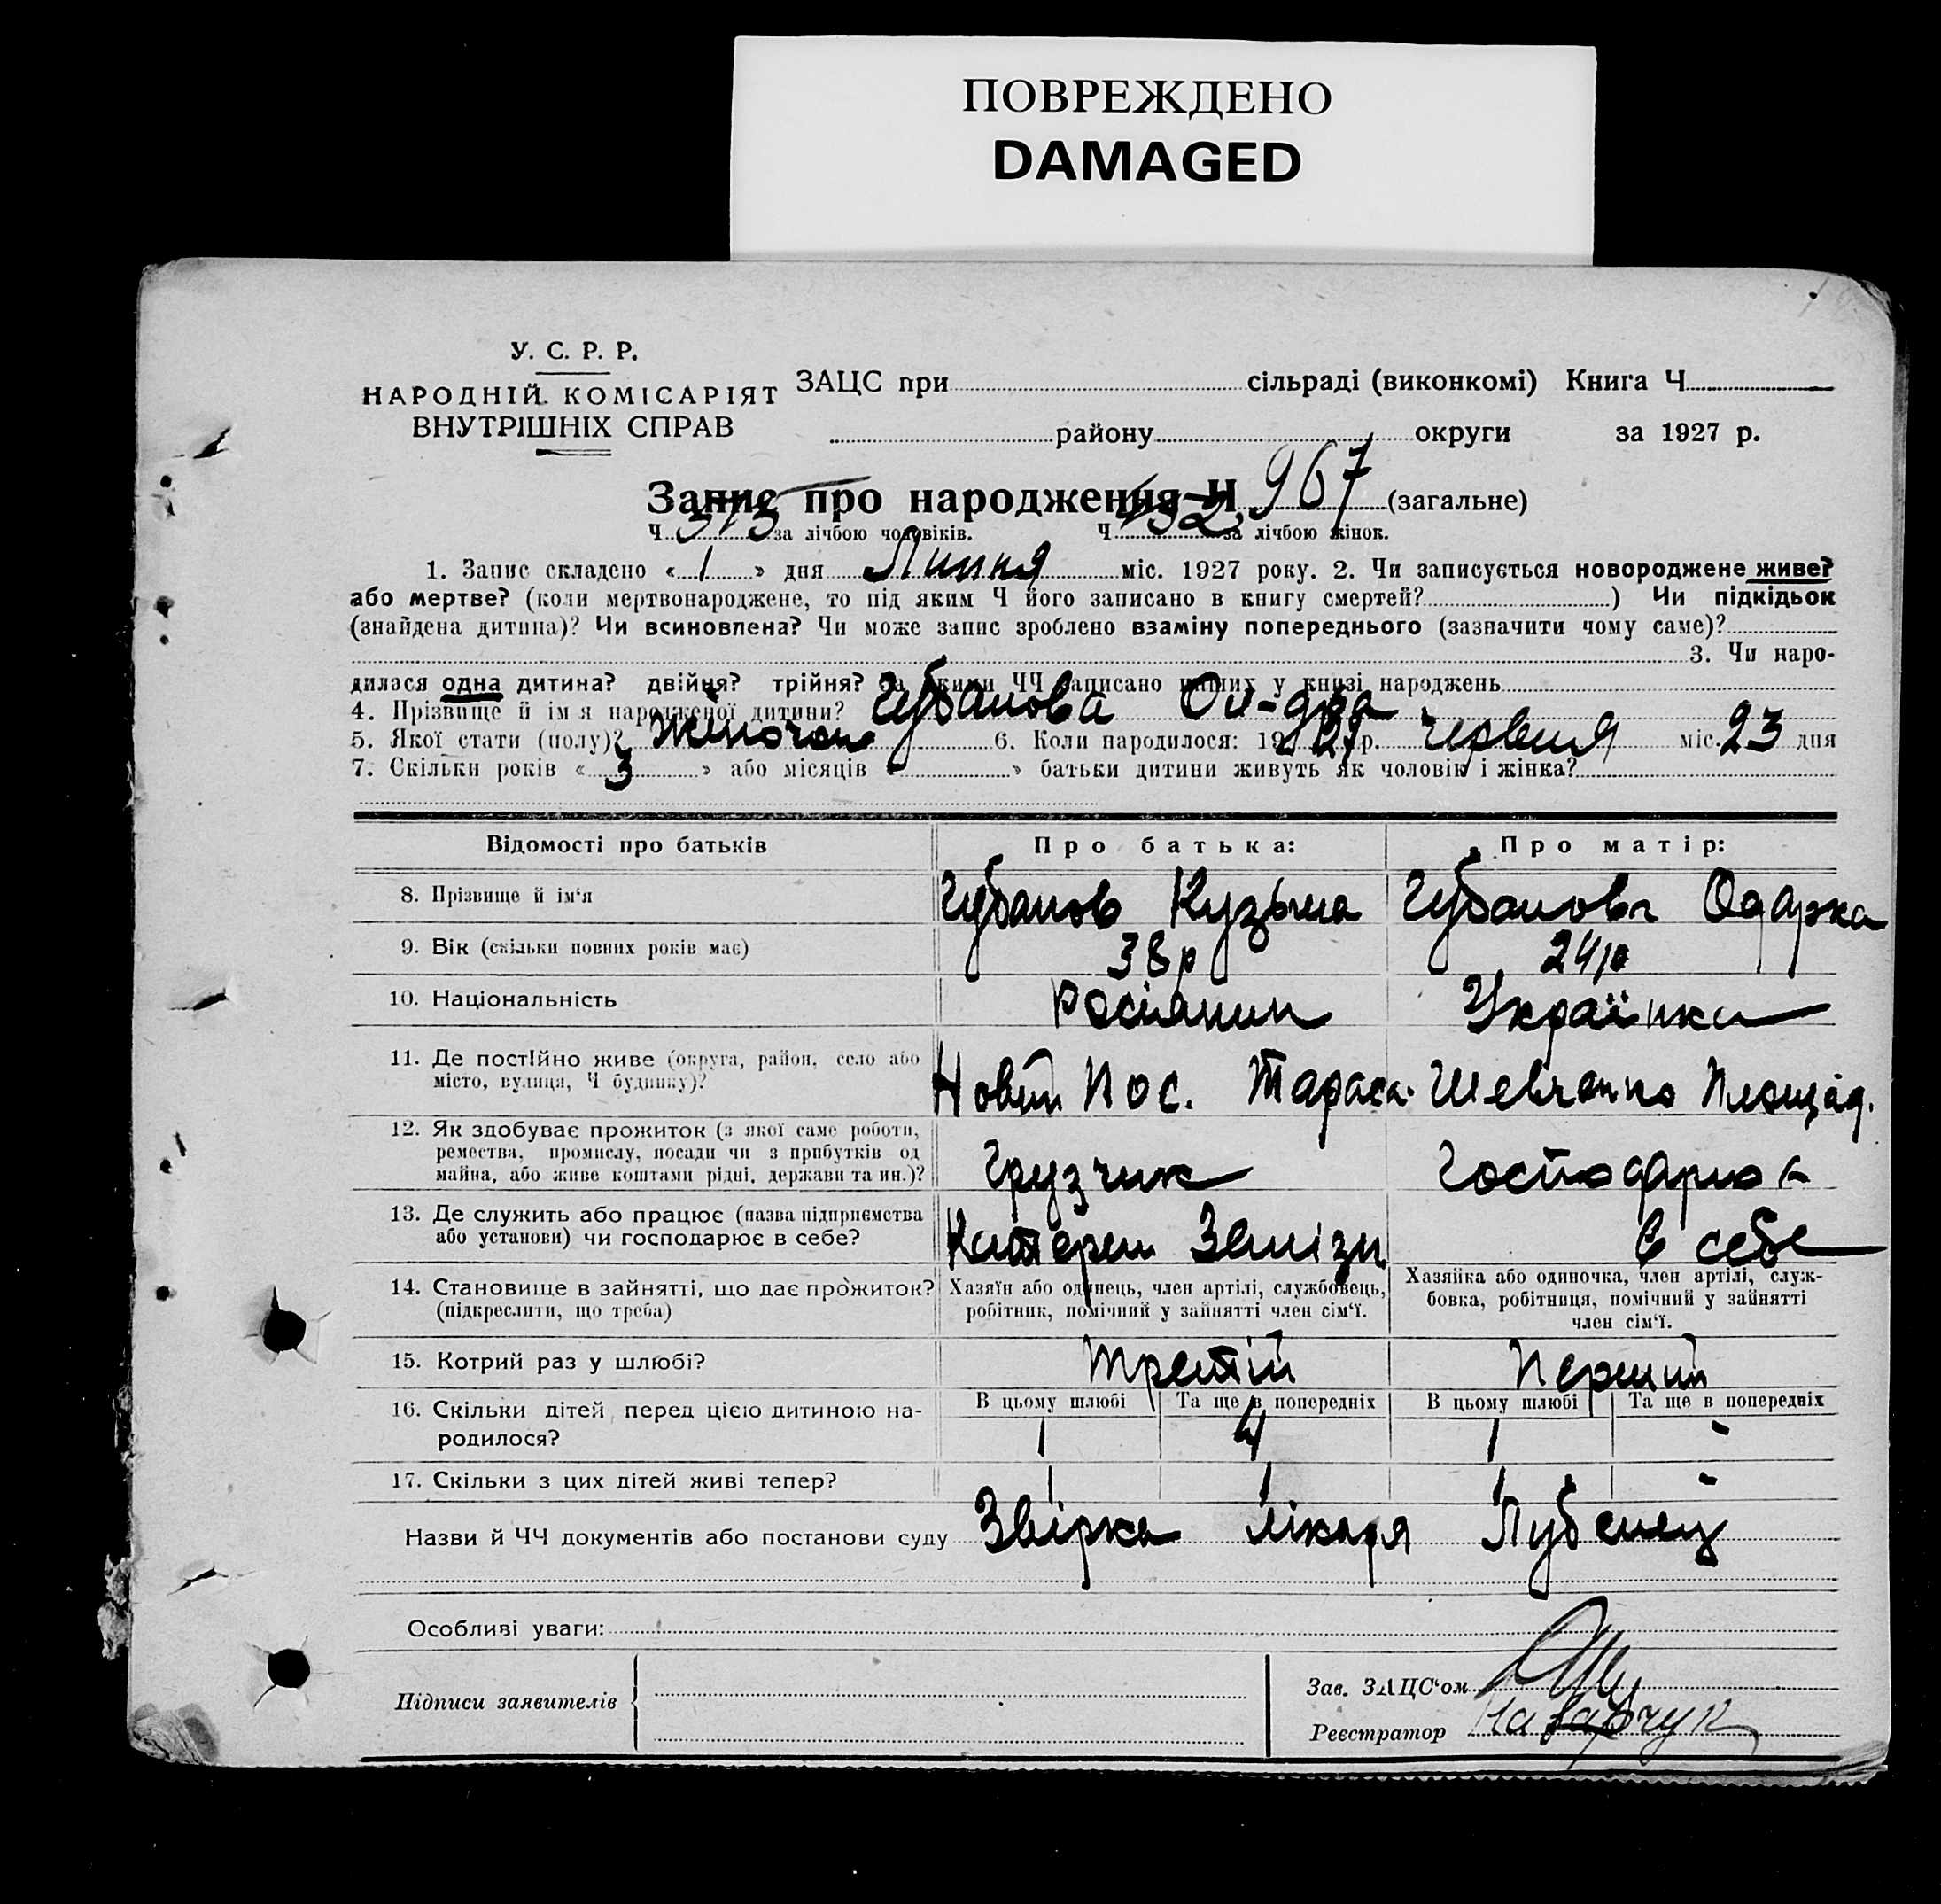 ПОВРЕЖДЕНО
DAMAGED
У. С. Р. Р.
НАРОДНІЙ КОМІСАРІЯТ
ВНУТРІШНІХ СПРАВ
ЗАЦС при сільраді (виконкомі) Книга Ч.
району округи за 1927 р.
Запис про народження Ч. 967 (загальне)
Ч. 515 за лічбою чоловіків. Ч. 452 за лічбою жінок.
1. Запис складено « 1 » дня Липня міс. 1927 року. 2. Чи записується новороджене живе?
або мертве? (коли мертвонароджене, то під яким Ч його записано в книгу смертей? ) Чи підкідьок
(знайдена дитина)? Чи всиновлена? Чи може запис зроблено взаміну попереднього (зазначити чому саме)?
3. Чи наро-
дилася одна дитина? двійня? трійня? За якими ЧЧ записано инших у книзі народжень
4. Прізвище й ім'я народженої дитини? Губанова Ол-дра
5. Якої стати (полу)? Жіночої 6. Коли народилося: 1927 р. червня міс. 23 дня
7. Скільки років « 3 » або місяців « » батьки дитини живуть як чоловік і жінка?
Відомості про батьків Про батька: Про матір:
8. Прізвище й ім'я Губанов Кузьма Губанова Одарка
9. Вік (скільки повних років має) 38 р 24 р
10. Національність Росіянин Українка
11. Де постійно живе (округа, район, село або
місто, вулиця, Ч будинку)? Новий Пос. Тараса Шевченко Площад.
12. Як здобуває прожиток (з якої саме роботи,
ремества, промислу, посади чи з прибутків од
майна, або живе коштами рідні, держави та ин.)? Грузчик Господарює
13. Де служить або працює (назва підприємства
або установи) чи господарює в себе? Катерин Залізн. в себе
14. Становище в зайнятті, що дає прожиток?
(підкреслити, що треба)
Хазяїн або одинець, член артілі, службовець,
робітник, помічний у зайнятті член сім'ї.
Хазяйка або одиночка, член артілі, служ-
бовка, робітниця, помічний у зайнятті
член сім'ї.
15. Котрий раз у шлюбі? Третій Перший
16. Скільки дітей перед цією дитиною на-
родилося?
В цьому шлюбі Та ще в попередніх В цьому шлюбі Та ще в попередніх
1 4 1 -
17. Скільки з цих дітей живі тепер? 1 1 1 -
Назви й ЧЧ документів або постанови суду Звірка лікаря Лубенец
Особливі уваги:
Підписи заявителів
Зав. ЗАЦС'ом
Реєстратор